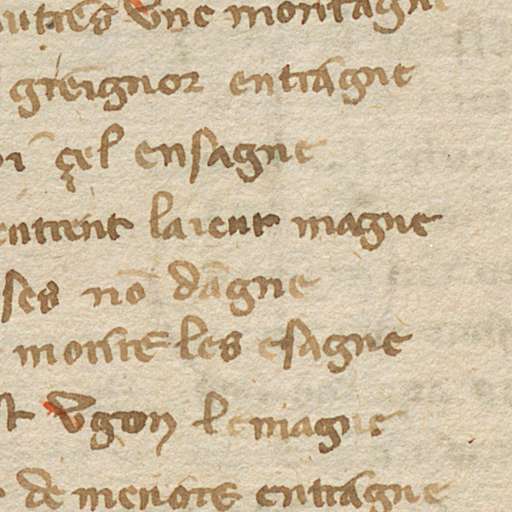 autres vne montagne
greignor entragne
çel ensagne
laient magne
ses nō dāgne
les esagne
vgon lemagne
de menors entragne